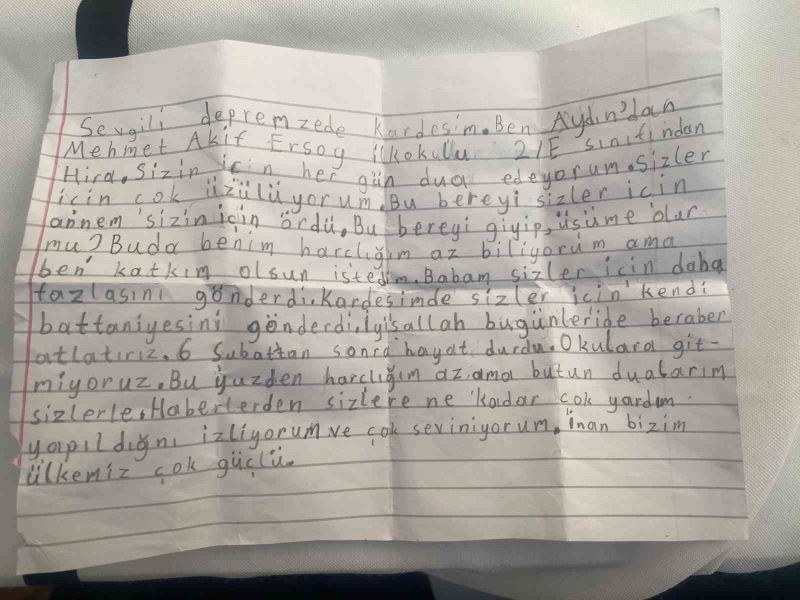 Sevgili depremzede kardeşim. Ben Aydın'dan
Mehmet Akif Ersoy ilkokulu 2/E sınıfından
Hira. Sizin için her gün dua edeyorum. Sizler
için çok üzülüyorum. Bu bereyi sizler için
annem sizin için ördü. Bu bereyi giyip, üşüme olur
mu? Buda benim harclığım az biliyorum ama
ben katkım olsun istedim. Babam sizler için daha
fazlasını gönderdi. Kardeşimde sizler için kendi
battaniyesini gönderdi. İyişallah bugünleride beraber
atlatırız. 6 Şubattan sonra hayat durdu. Okulara git-
miyoruz. Bu yüzden harclığım az ama bütün dualarım
sizlerle. Haberlerden sizlere ne kadar çok yardım
yapıldığnı izliyorum ve çok seviniyorum. İnan bizim
ülkemiz çok güçlü.